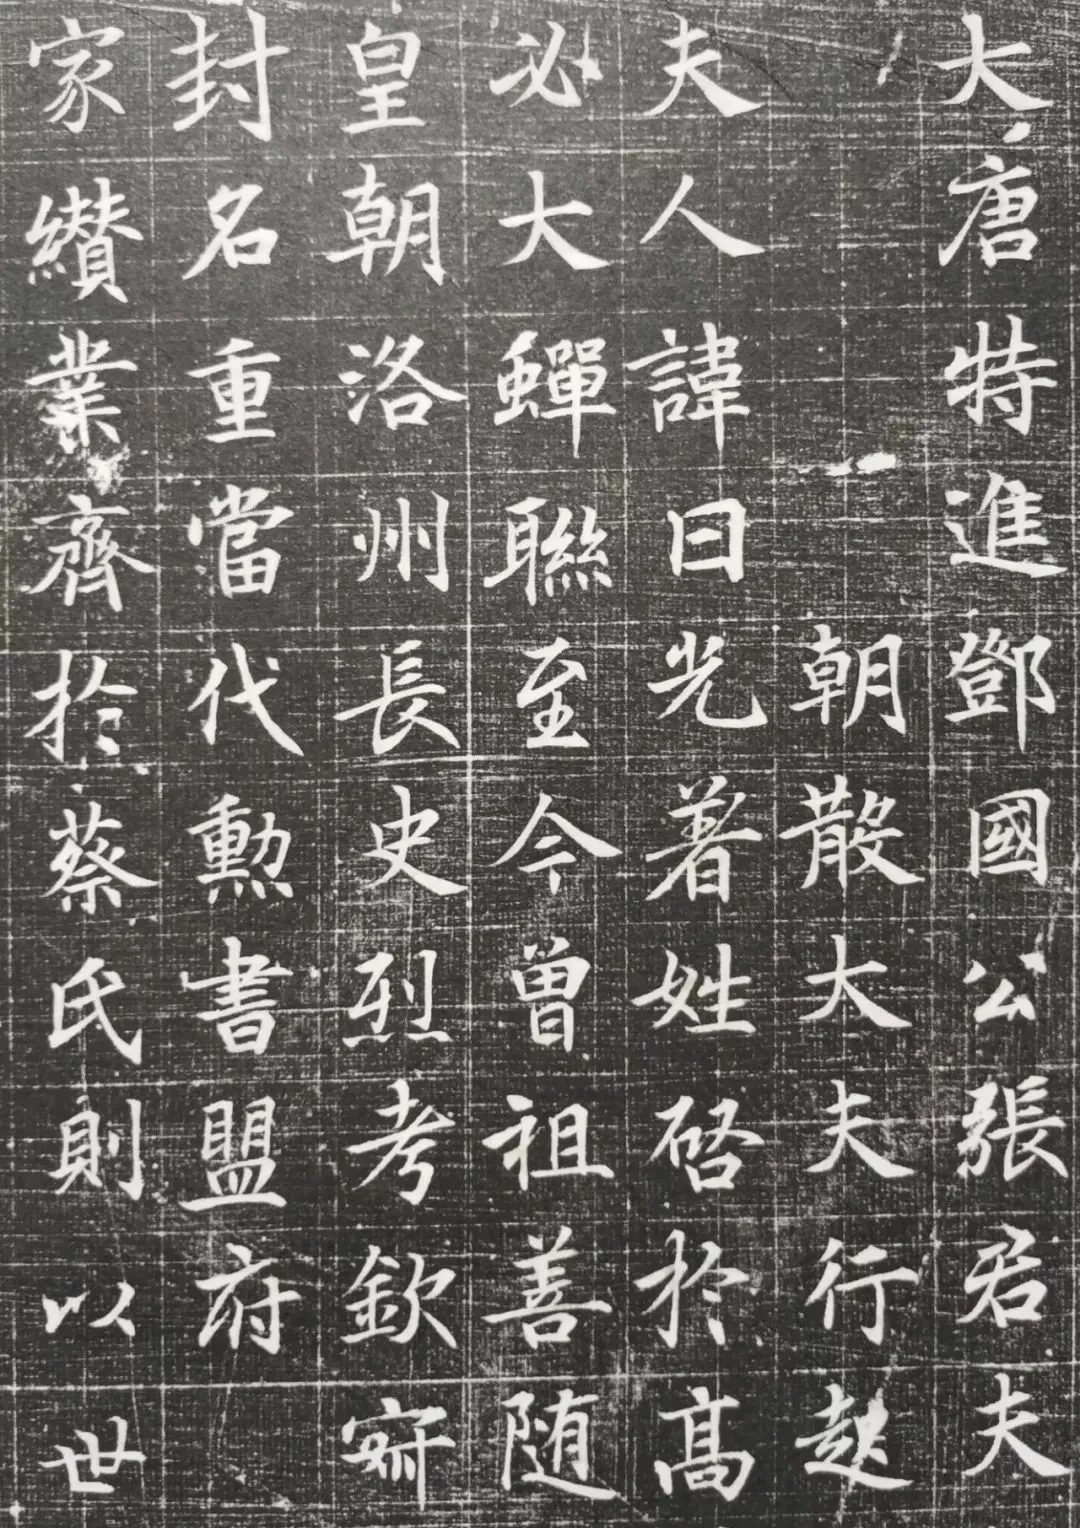 大唐特進鄧國公張君夫
朝散大夫行趙
夫人諱日光著姓啓於高
必大蟬聯至今曾祖善随
皇朝洛州長史烈考欽寂
封名重當代勳書盟府
家纘業齊於蔡氏則以世